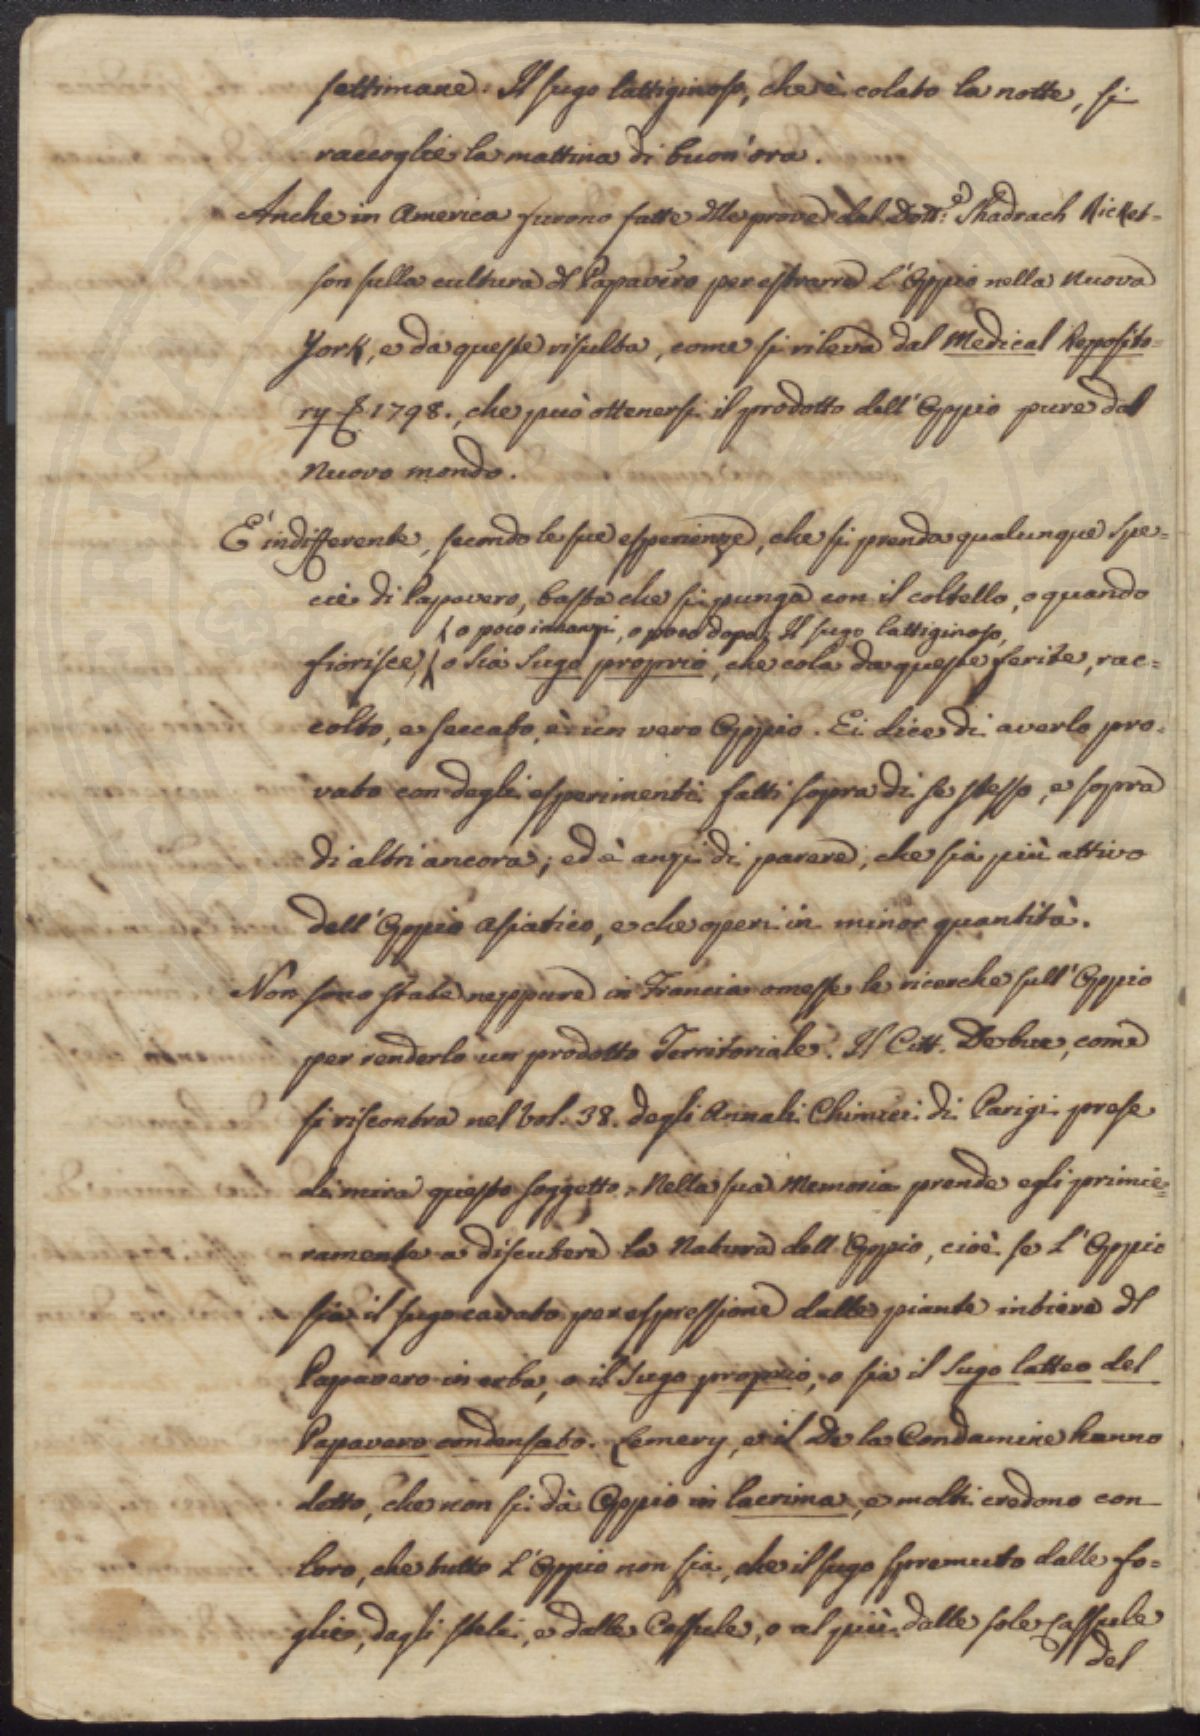 settimane. Il sugo lattiginoso, che è colato la notte, si
raccoglie la mattina di buon'ora.
Anche in America furono fatte delle prove dal Dott.e Shadrach Ricket-
son sulla cultura del Papavero per estrarre l'Oppio nella Nuova
York, e da queste risulta, come si rileva dal Medical Reposito-
ry 1798., che può ottenersi il prodotto dell'Oppio pure dal
Nuovo mondo.
È indifferente, secondo le sue esperienze, che si prenda qualunque spe-
cie di Papavero, basta che si punga con il coltello, o quando
o poco innanzi, o poco dopo; Il sugo lattiginoso,
fiorisce, o sia sugo proprio, che cola da queste ferite, rac-
colto, e seccato, è un vero Oppio. Ei dice di averlo pro-
vato con degli esperimenti fatti sopra di se stesso, e sopra
di altri ancora; ed è anzi di parere, che sia più attivo
dell'Oppio Asiatico, e che operi in minor quantità.
Non sono state neppure in Francia omesse le ricerche sull'Oppio
per renderlo un prodotto Territoriale. Il Citt. Debue, come
si riscontra nel Vol. 38. degli Annali Chimici di Parigi prese
di mira questo soggetto. Nella sua Memoria prende egli primie-
ramente a discutere la Natura dell'Oppio, cioè se l'Oppio
sia il sugo cavato per espressione dalle piante intiere del
Papavero in erba, o il Sugo proprio, o sia il Sugo latteo del
Papavero condensato. Lemery, e il De la Condamine hanno
detto, che non si dà Oppio in lacrima, e molti credono con
loro, che tutto l'Oppio non sia, che il sugo spremuto dalle fo-
glie, dagli steli, e dalle Cassule, o al più dalle sole Cassule
del